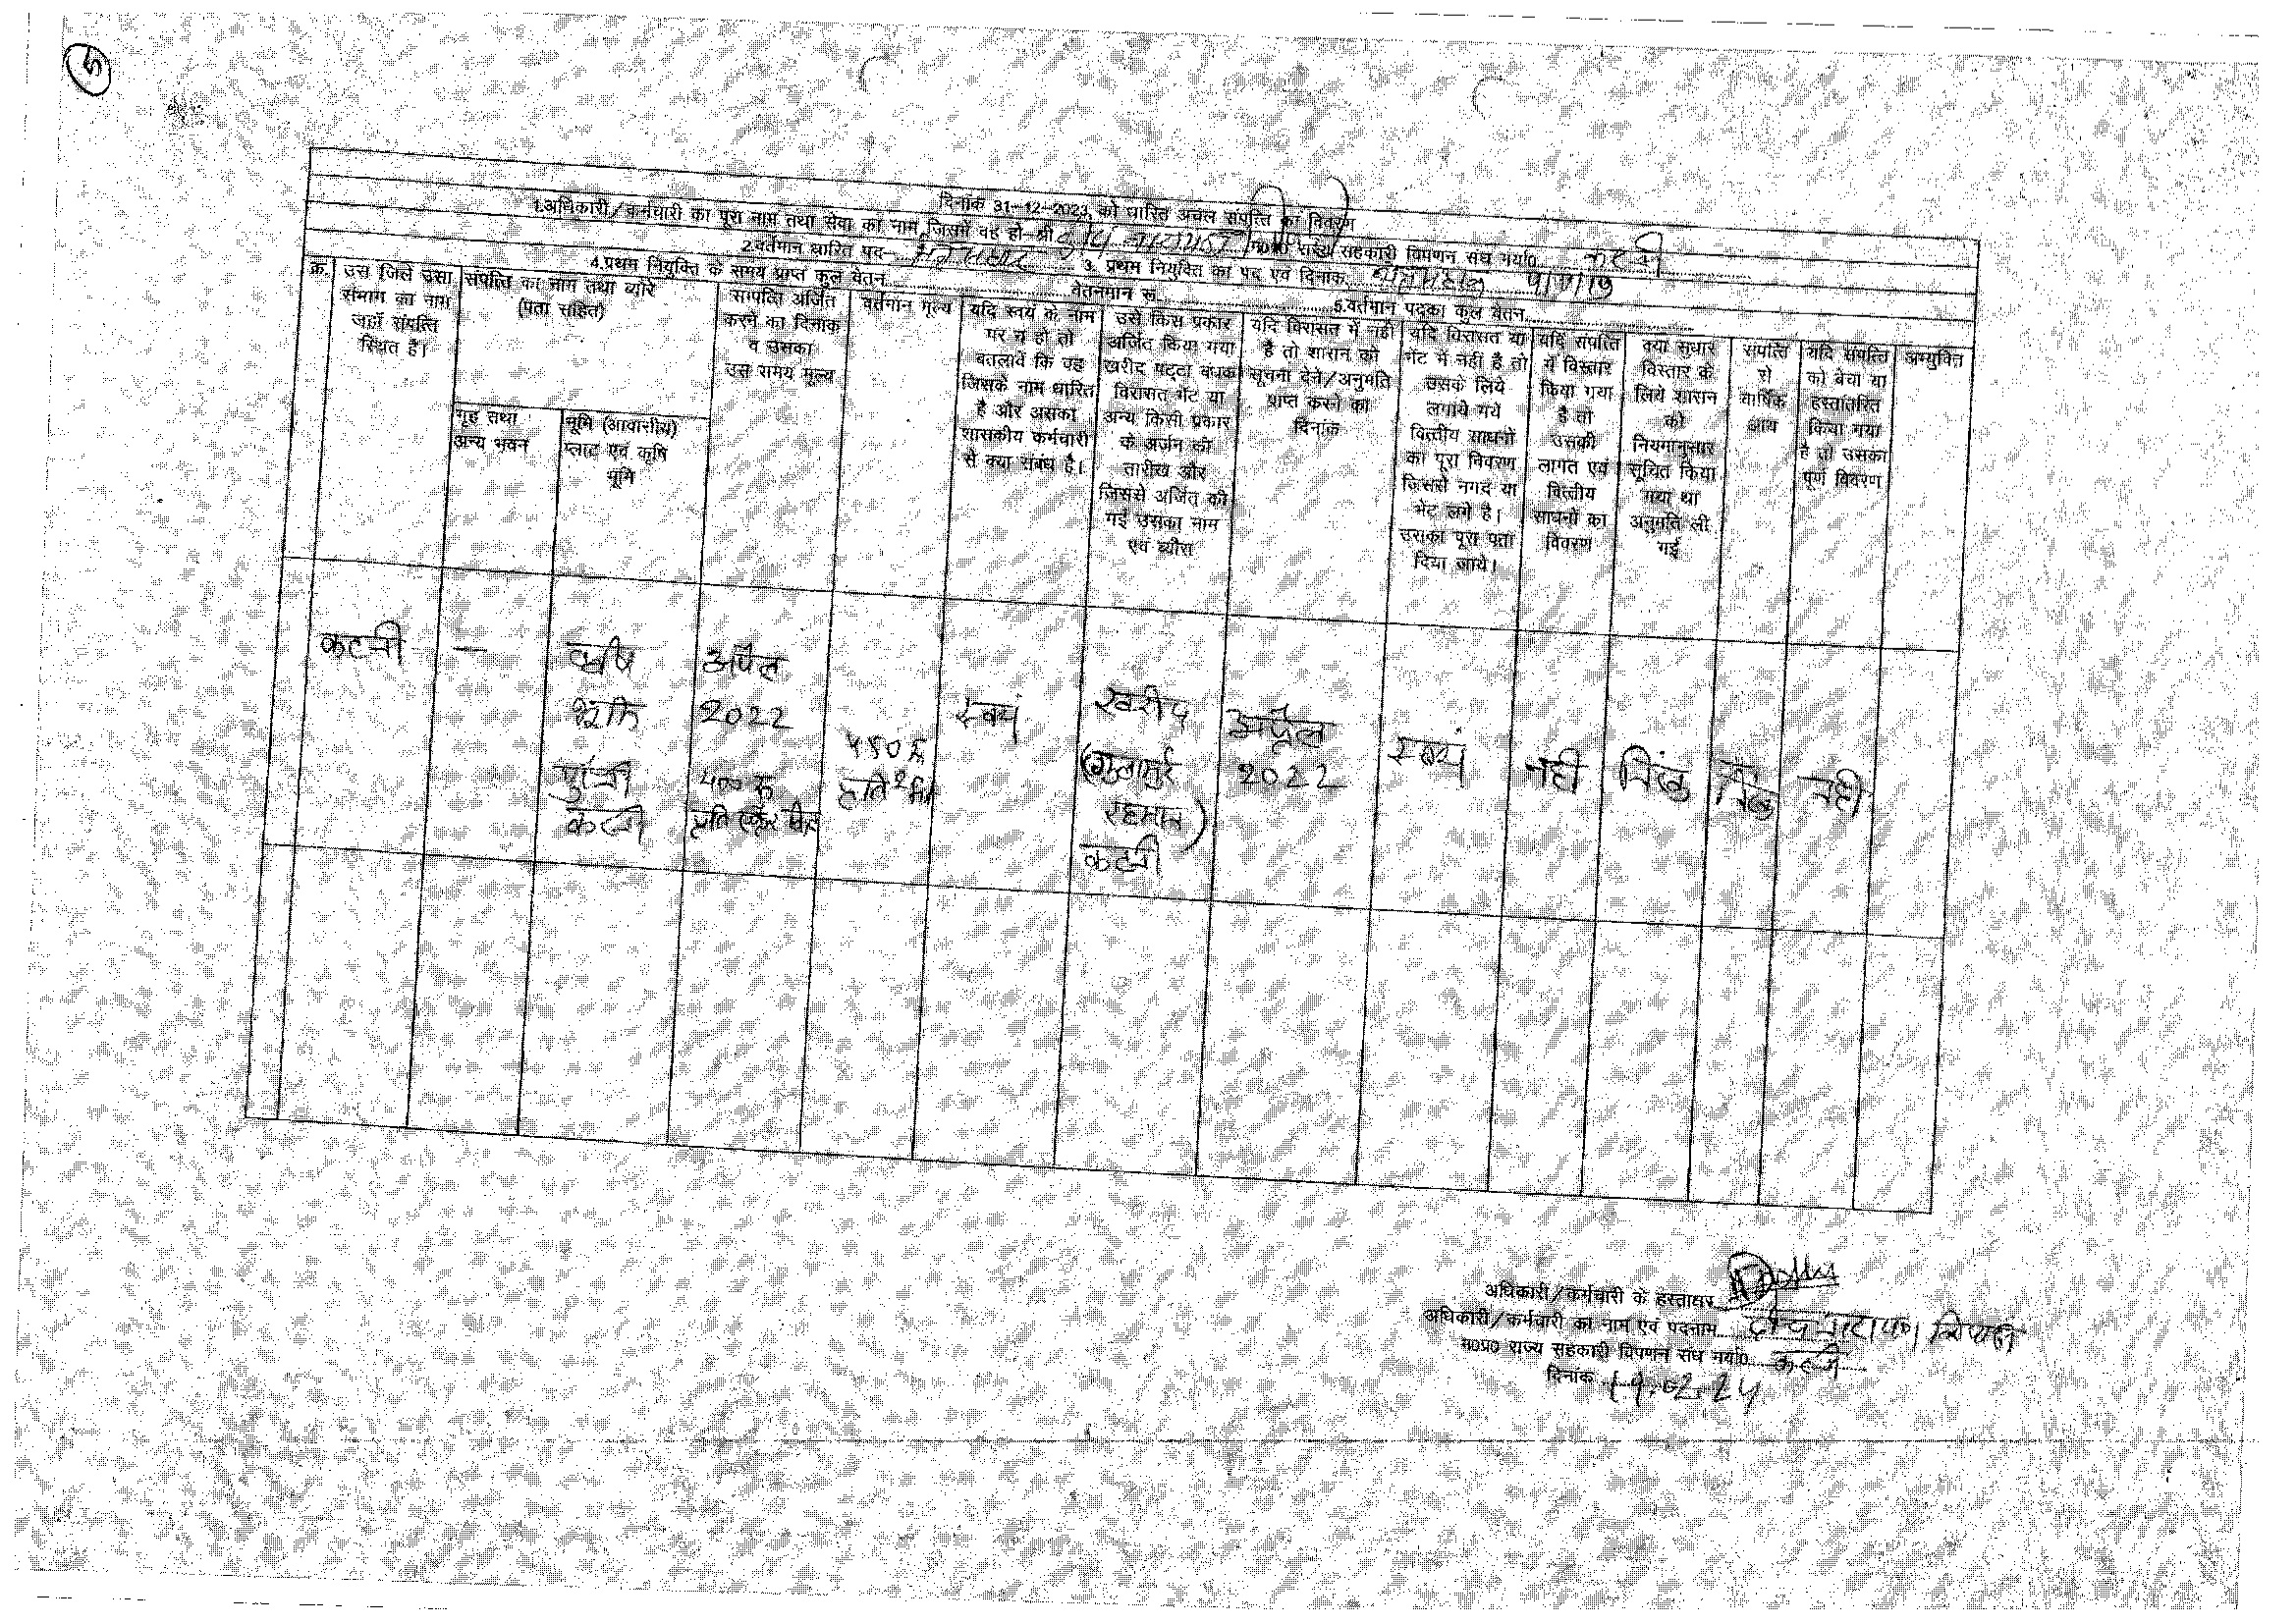 5
दिनांक 31-12-2023 को धारित अचल संपत्ति का विवरण
1.अधिकारी/कर्मचारी का पूरा नाम तथा सेवा का नाम जिसमें वह हो-श्री म0प्र0 राज्य सहकारी विपणन संघ मर्या0 कटनी
2.वर्तमान धारित पद- 3. प्रथम नियुक्ति का पद एवं दिनांक
4.प्रथम नियुक्ति के समय प्राप्त कुल वेतन वेतनमान रू 5.वर्तमान पदका कुल वेतन
क्र. उस जिले उसा संभाग का नाम जहाँ संपत्ति स्थित है।
संपत्ति का नाम तथा ब्यौरे (पता सहित)
गृह तथा अन्य भवन
भूमि (आवासीय) प्लाट एवं कृषि भूमि
सम्पत्ति अर्जित करने का दिनांक व उसका उस समय मूल्य
वर्तमान मूल्य
यदि स्वयं के नाम पर न हो तो बतलावें कि वह जिसके नाम धारित है और असका शासकीय कर्मचारी से क्या संबंध है।
उसे किस प्रकार अर्जित किया गया खरीद पट्टा बंधक विरासत भेंट या अन्य किसी प्रकार के अर्जन की तारीख और जिससे अर्जित की गई उसका नाम एवं ब्यौरा
यदि विरासत में नहीं है तो शासन को सूचना देने/अनुमति प्राप्त करने का दिनांक
यदि विरासत या भेंट में नहीं है तो उसके लिये लगाये गये वित्तीय साधनों का पूरा विवरण जिससे नगद या भेंट लगे है। उसका पूरा पता दिया जाये।
यदि संपत्ति में विस्तार किया गया है तो उसकी लागत एवं वित्तीय साधनों का विवरण
क्या सुधार विस्तार के लिये शासन को नियमानुसार सूचित किया गया था अनुमति ली गई
संपत्ति से वार्षिक आय
यदि संपत्ति को बेचा या हस्तांतरित किया गया है तो उसका पूर्ण विवरण
अभ्युक्ति
कटनी
—
कृषि
भूमि
कटनी
अप्रैल
2022
400 रू
450 रू
स्वयं
खरीद
रहमान)
कटनी
अप्रैल
2022
स्वयं
नहीं
निरंक
निरंक
नहीं
अधिकारी/कर्मचारी के हस्ताक्षर
अधिकारी/कर्मचारी का नाम एवं पदनाम
म0प्र0 राज्य सहकारी विपणन संघ मर्या0 कटनी
दिनांक 19.02.24